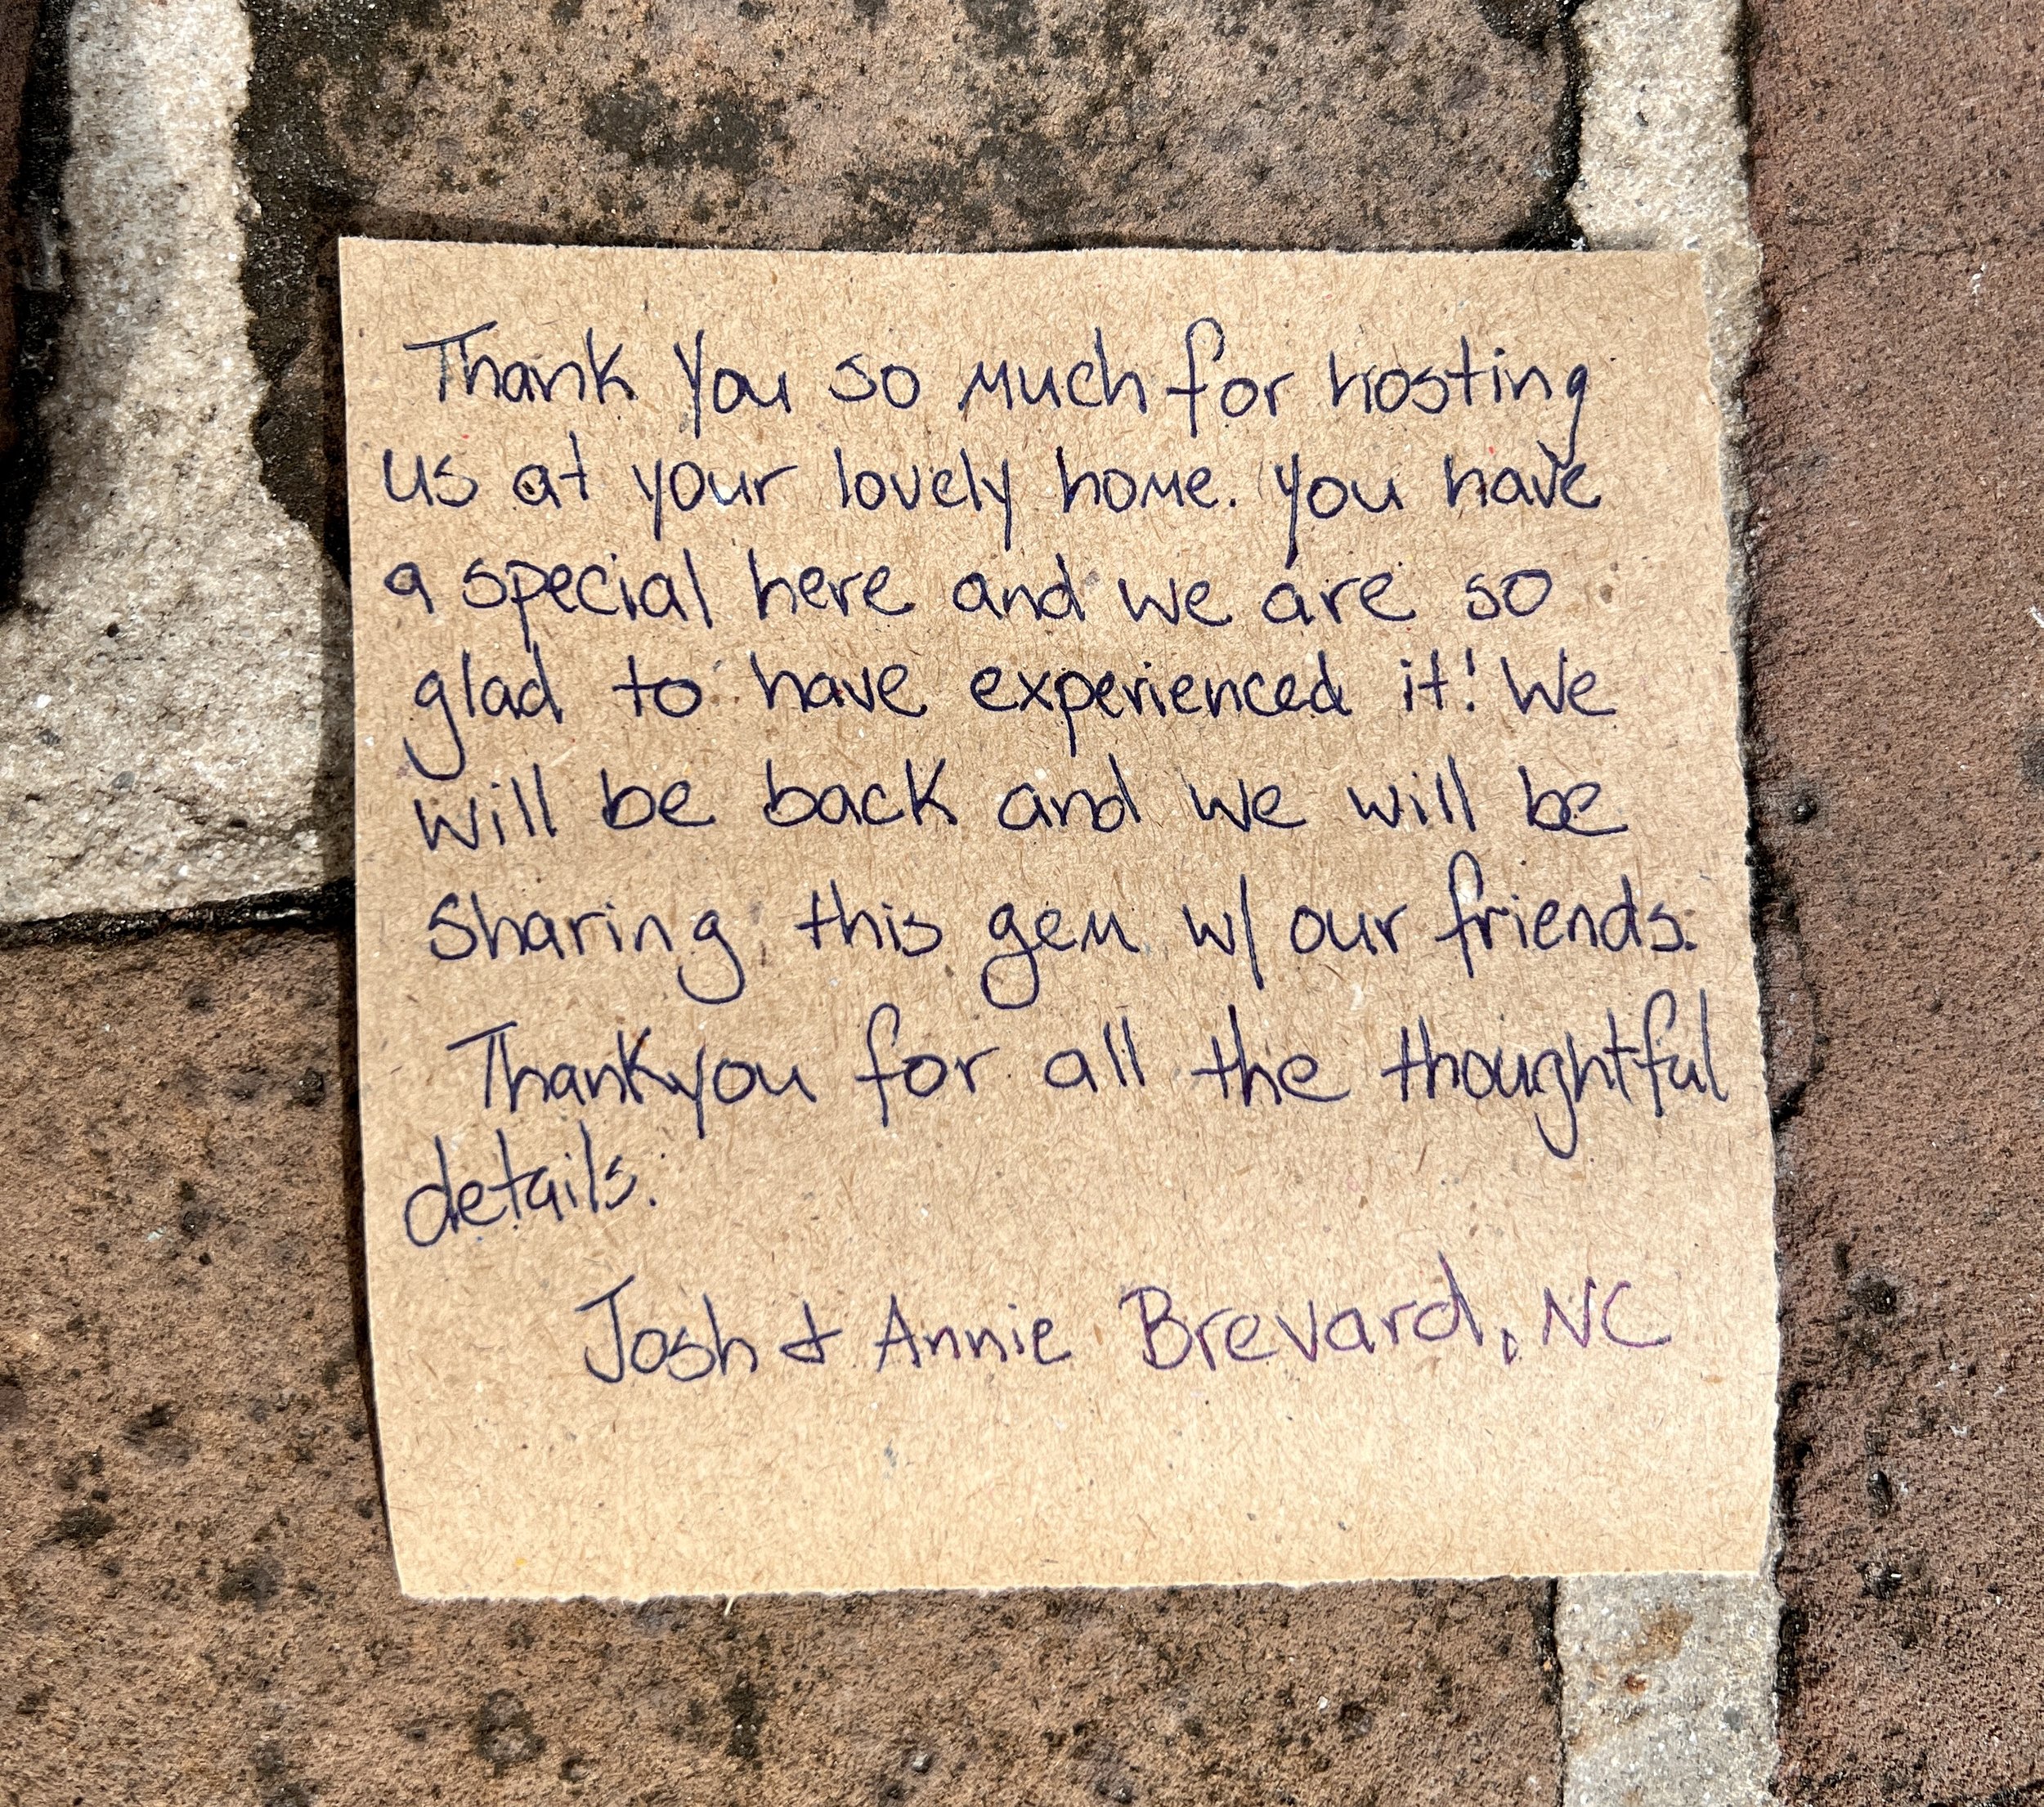 Thank you so much for hosting
us at your lovely home. you have
a special here and we are so
glad to have experienced it! We
will be back and we will be
sharing this gem w/ our friends.
Thankyou for all the thoughtful
details.
Josh & Annie Brevard, NC